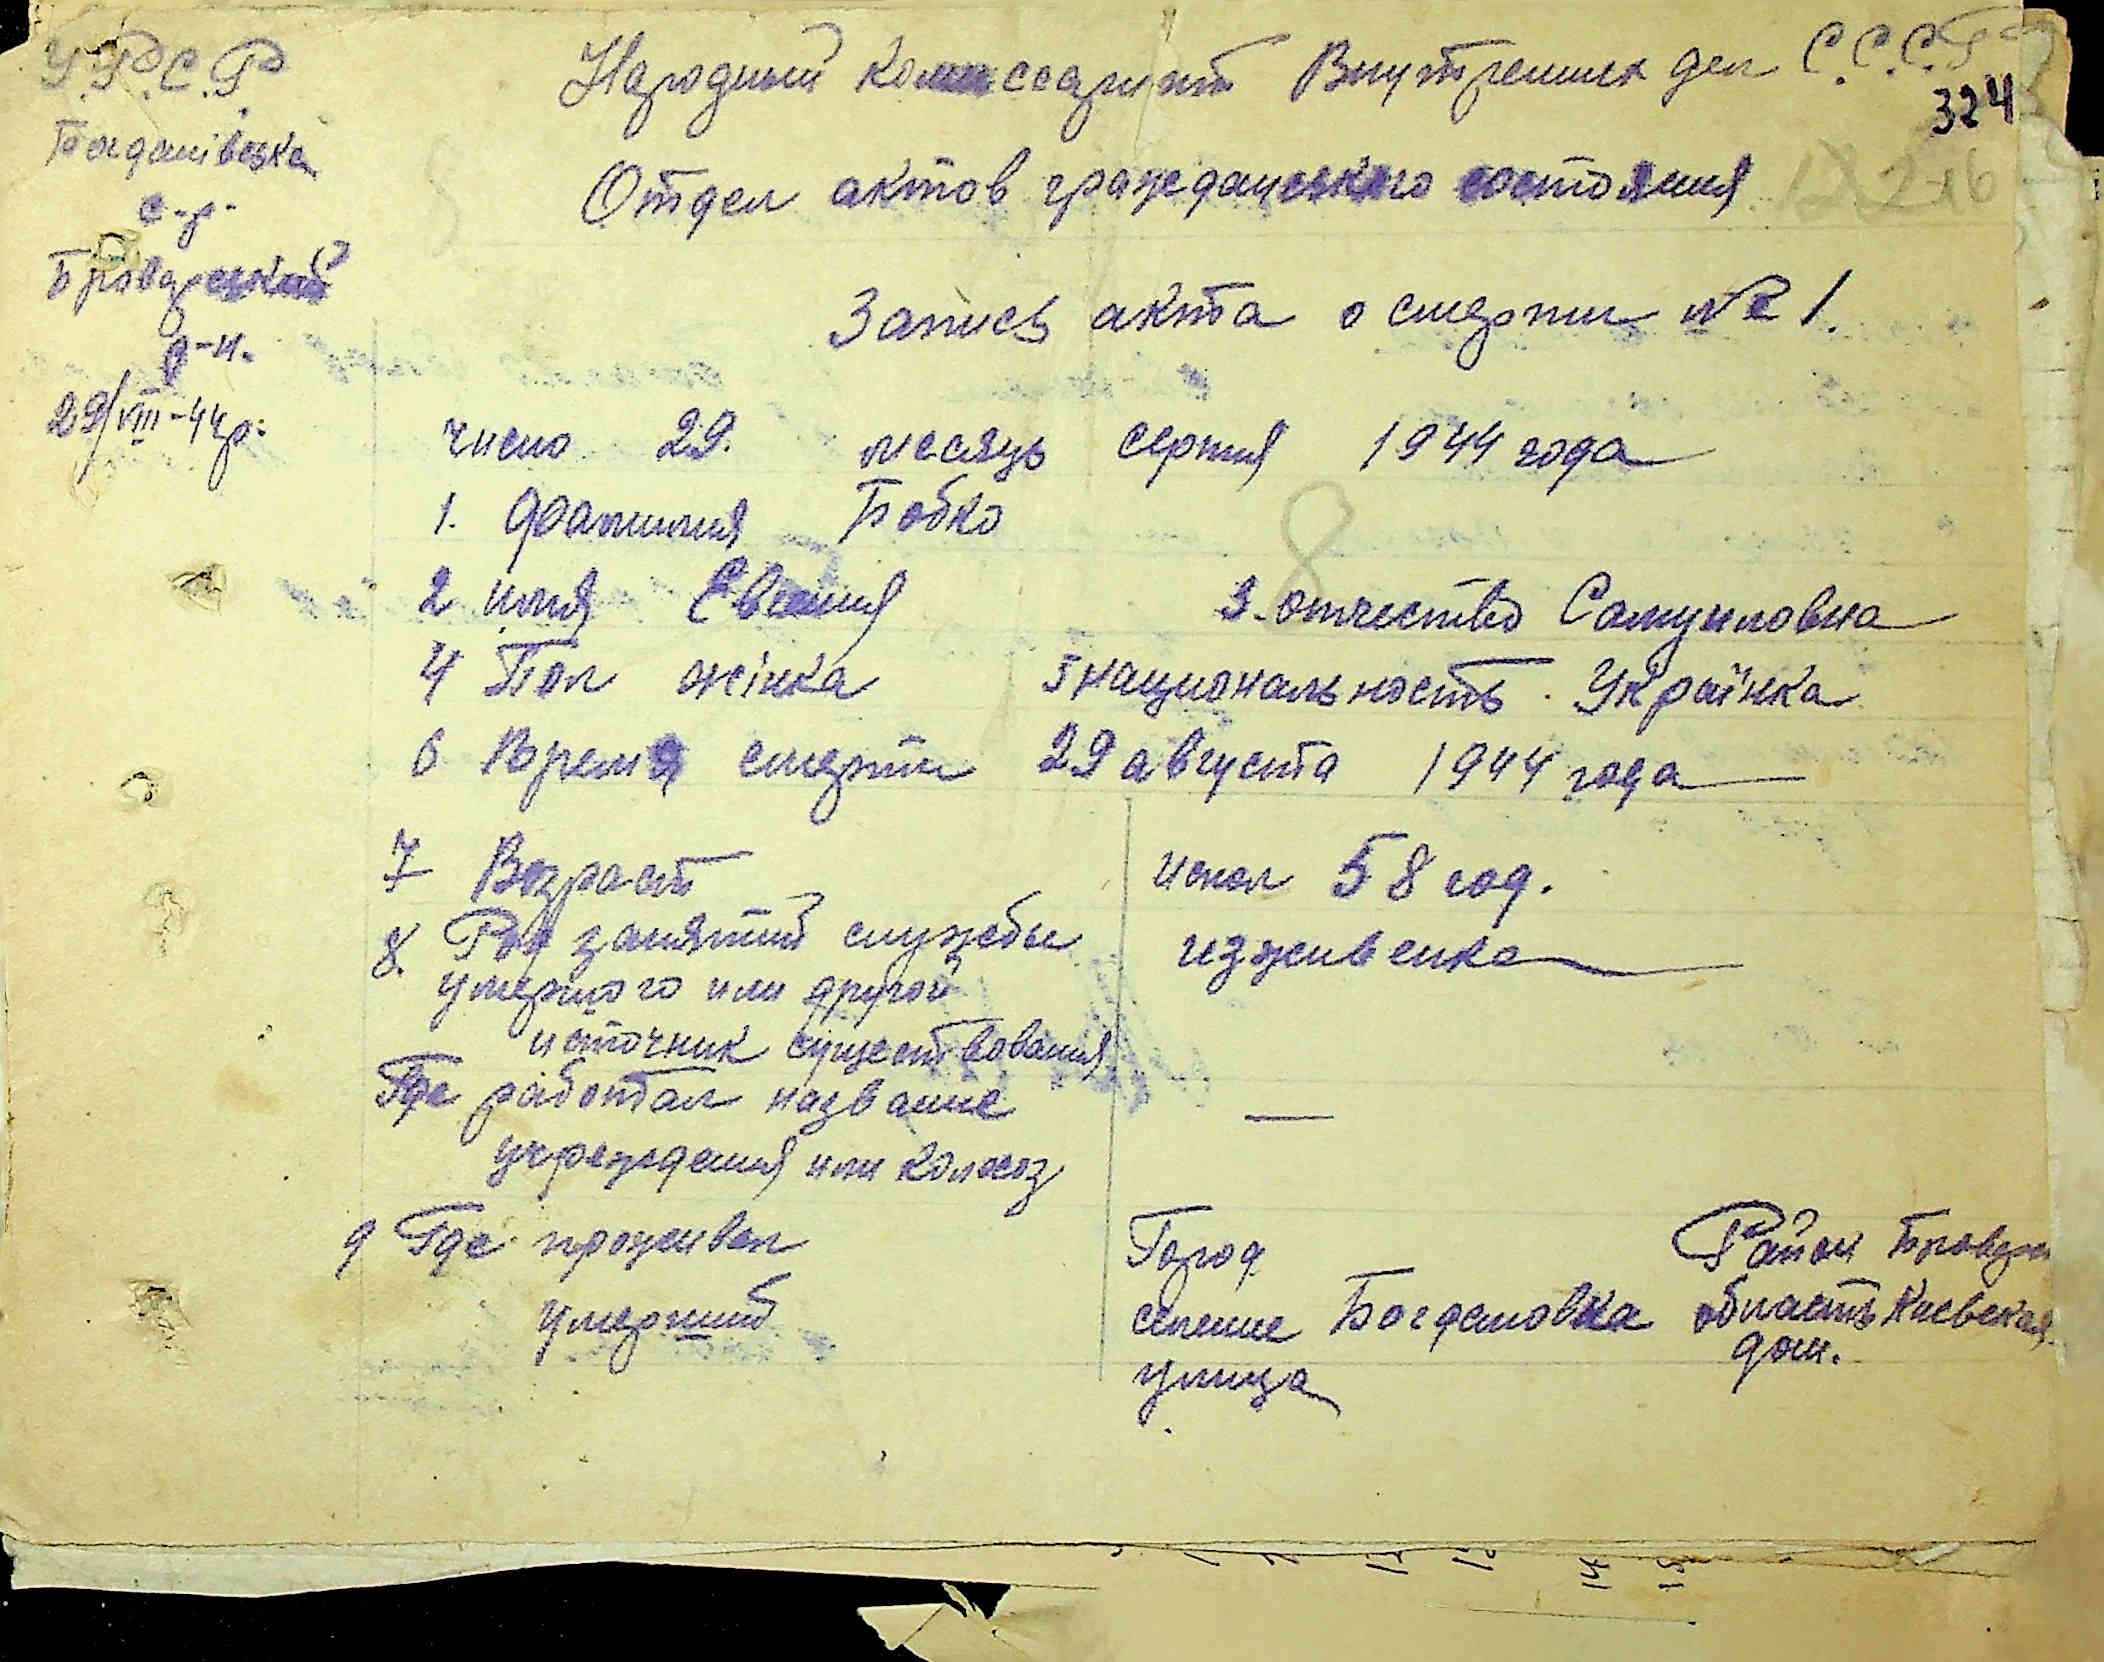 У.Р.С.Р.
Богданівська
с-р.
Броварський
р-н.
29/VIII-44р.
Народный комиссариат Внутренних дел С.С.С.Р.
324
Отдел актов гражданського состояния
Запись акта о смерти № 1.
число 29. месяць серпня 1944 года
1. Фамилия Бобко
8
2 имя 3. отчество Самуиловна
4 Пол жінка 5 национальность. Українка
6 Время смерти 29 августа 1944 года
7 Возраст испол 58 год.
8. Род занятий службы иждивенка
умершого или другой
источник существования
Где работал название —
учреждения или колхоз
9 Где проживал Город Район Бровар
умерший селение Богдановка область Киевская
улица дом.